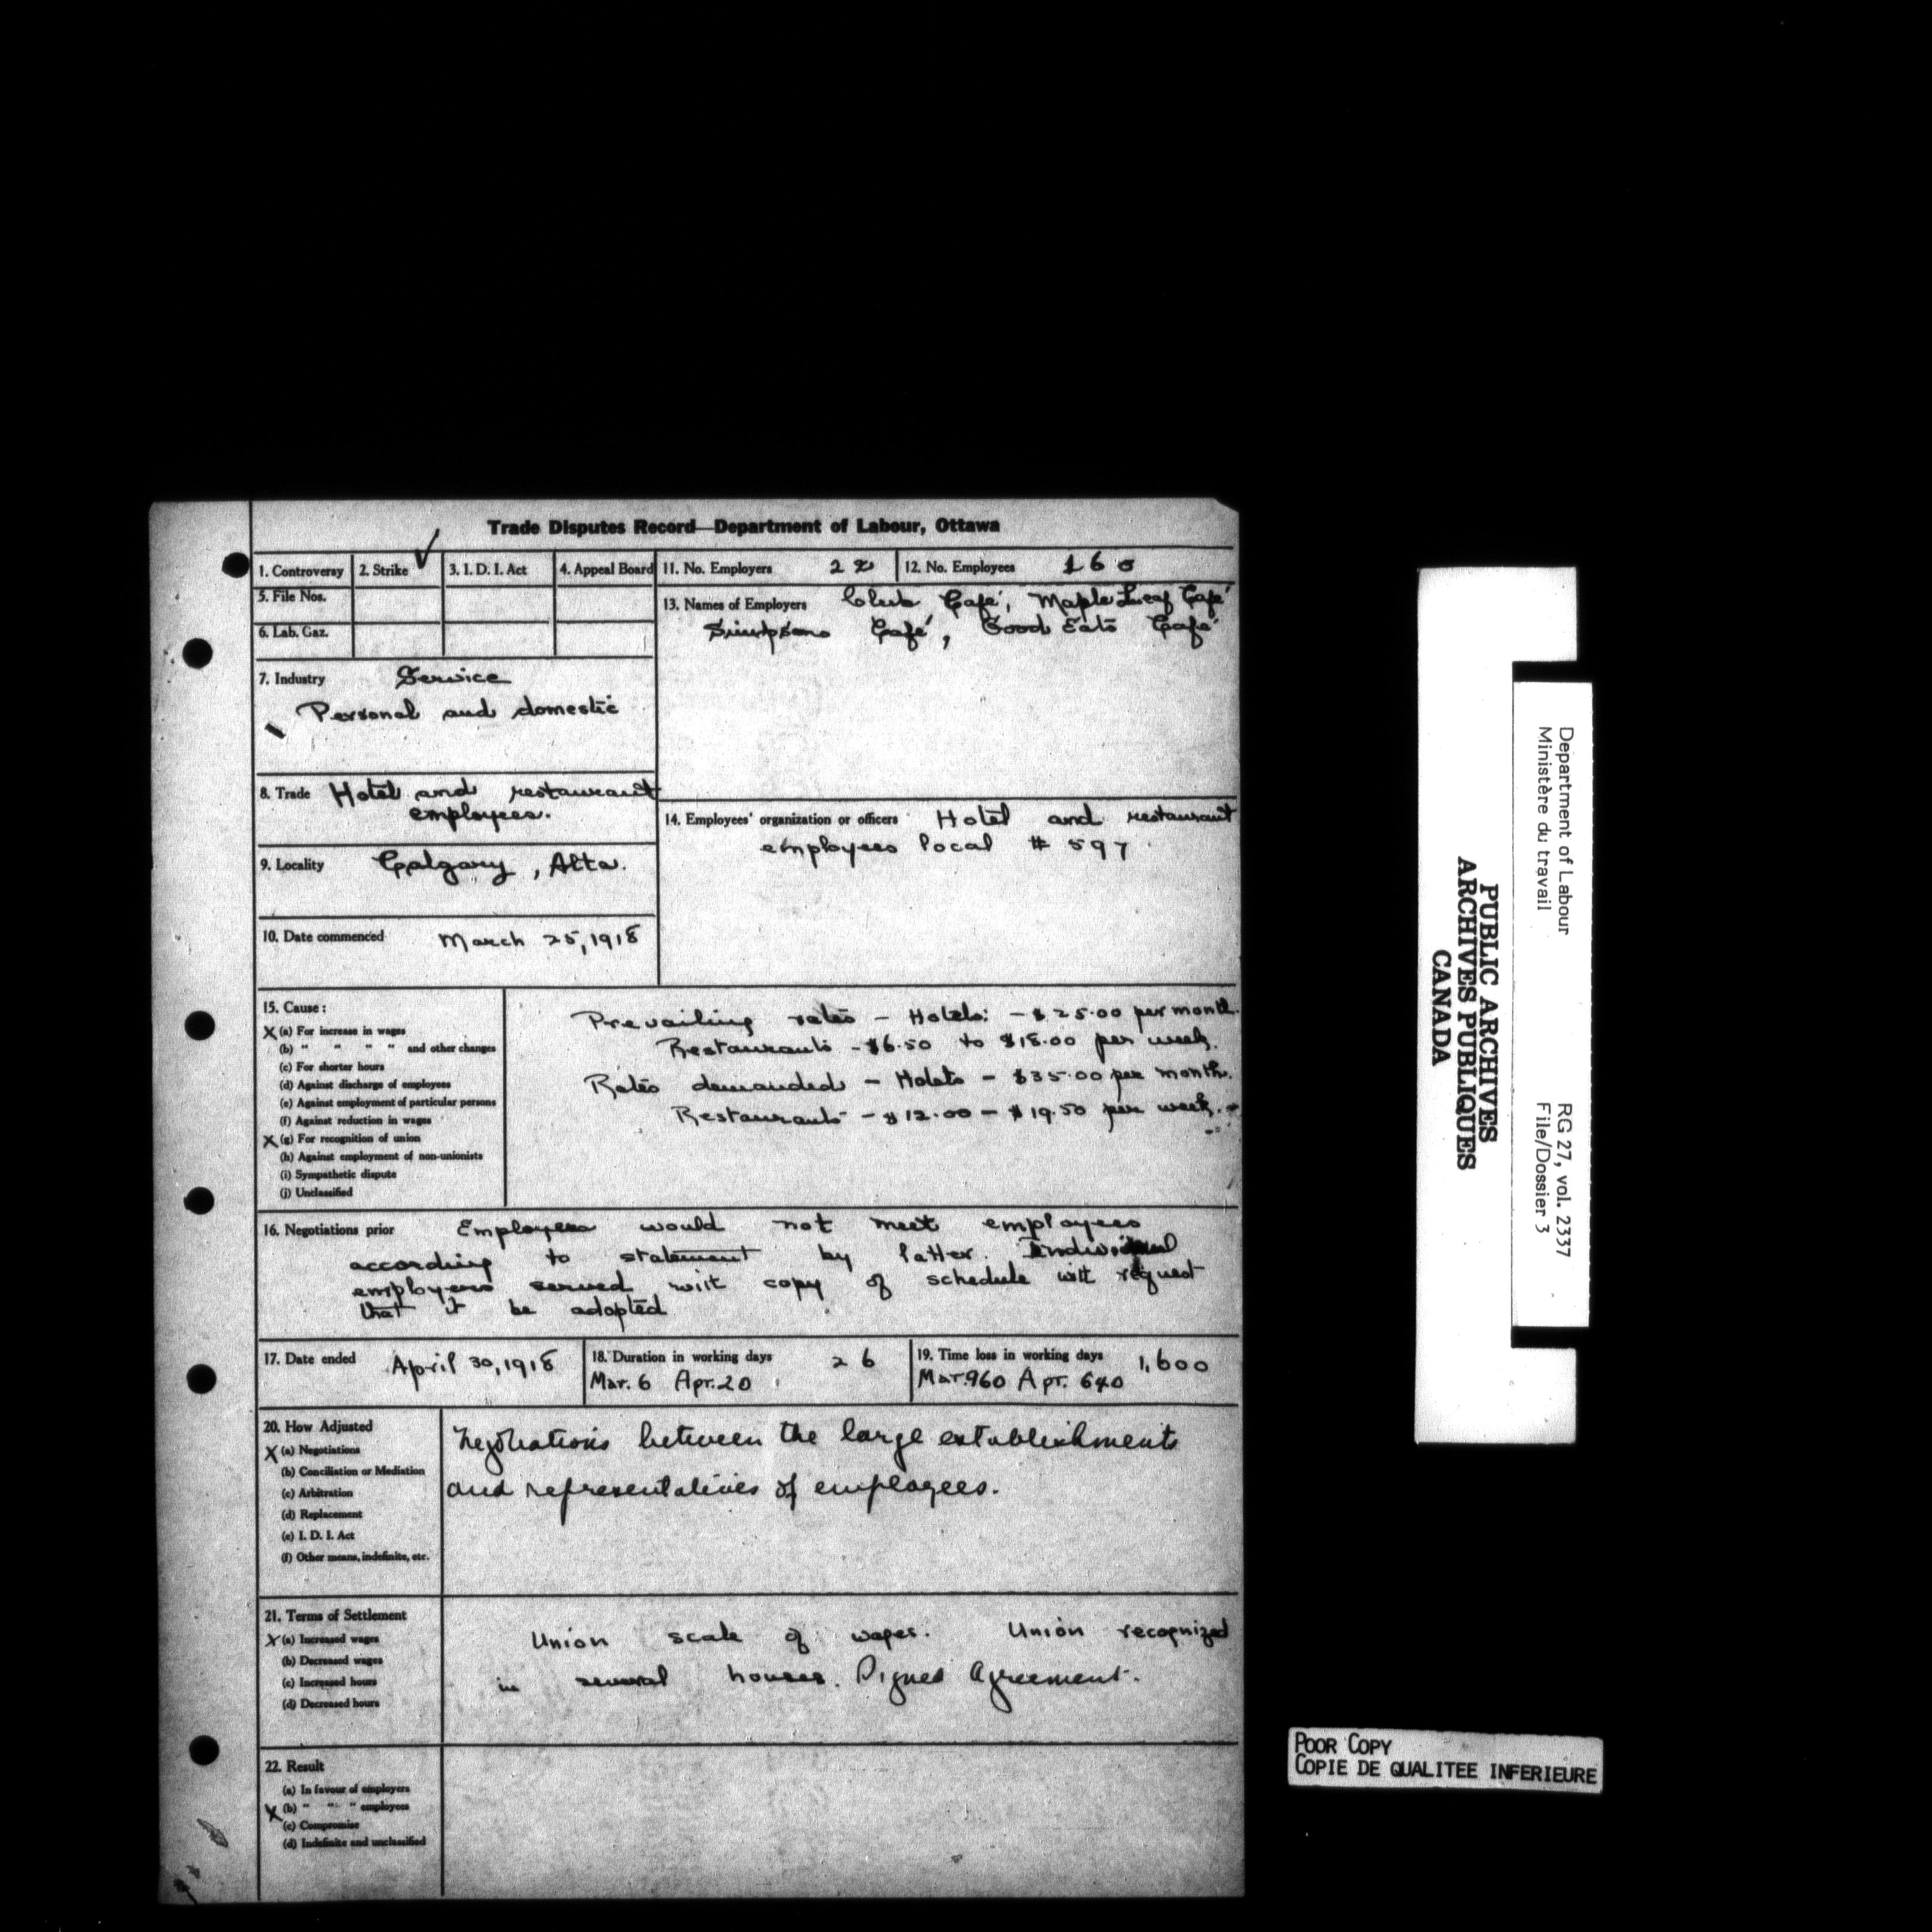 Trade Disputes Record—Department of Labour, Ottawa
1. Controversy 2. Strike ✓ 3. I. D. I. Act 4. Appeal Board 11. No. Employers 22 12. No. Employees 160
5. File Nos.
6. Lab. Gaz.
13. Names of Employers Club Café, Maple Leaf Café
Simpsons Café, Good Eats Café
7. Industry Service
Personal and domestic
8. Trade Hotel and restaurant
employees.
9. Locality Calgary, Alta.
10. Date commenced March 25, 1918
14. Employees' organization or officers Hotel and restaurant
employees local # 597
15. Cause:
X (a) For increase in wages
(b) " " " " and other changes
(c) For shorter hours
(d) Against discharge of employees
(e) Against employment of particular persons
(f) Against reduction in wages
X (g) For recognition of union
(h) Against employment of non-unionists
(i) Sympathetic dispute
(j) Unclassified
Prevailing rates – Hotels: – $25.00 per month.
Restaurants – $6.50 to $18.00 per week.
Rates demanded – Hotels – $35.00 per month.
Restaurants – $12.00 – $19.50 per week.
16. Negotiations prior Employers would not meet employees
according to statement by latter. Individual
employers served with copy of schedule with request
that it be adopted
17. Date ended April 30, 1918 18. Duration in working days 26
Mar. 6 Apr. 20
19. Time loss in working days 1,600
Mar. 960 Apr. 640
20. How Adjusted
X (a) Negotiations
(b) Conciliation or Mediation
(c) Arbitration
(d) Replacement
(e) I. D. I. Act
(f) Other means, indefinite, etc.
Negotiations between the large establishments
and representatives of employees.
21. Terms of Settlement
X (a) Increased wages
(b) Decreased wages
(c) Increased hours
(d) Decreased hours
Union scale of wages. Union recognized
in several houses. Signed Agreement.
22. Result
(a) In favour of employers
X (b) " " " employees
(c) Compromise
(d) Indefinite and unclassified
PUBLIC ARCHIVES
ARCHIVES PUBLIQUES
CANADA
Department of Labour
Ministère du travail
RG 27, vol. 2337
File/Dossier 3
POOR COPY
COPIE DE QUALITEE INFERIEURE